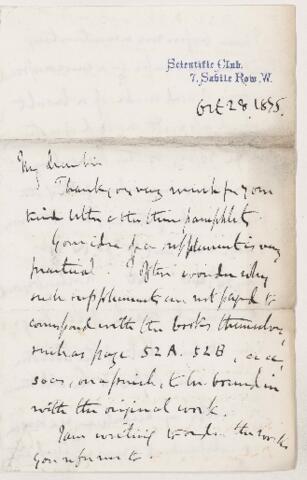 Scientific Club.
7, Savile Row, W.
Oct 28, 1895.
My dear Sir
Thank you very much for your
kind letter & the pamphlet.
Your idea of a supplement is very
practical. I often wonder why
such supplements are not paged to
correspond with the books themselves,
such as page 52A. 52B,
to be bound in
with the original work.
I am writing to order the works
you refer me to.